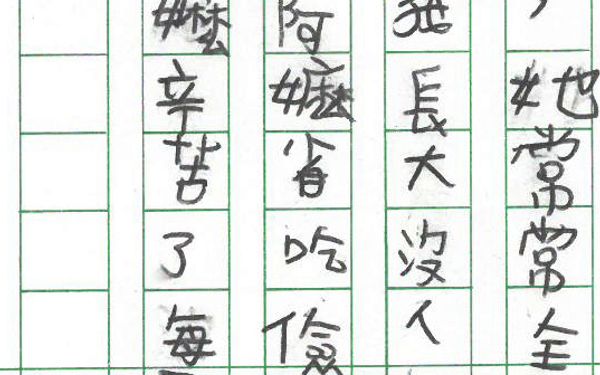 ，她常常全
長大沒人
阿嬤省吃儉
嬤辛苦了每